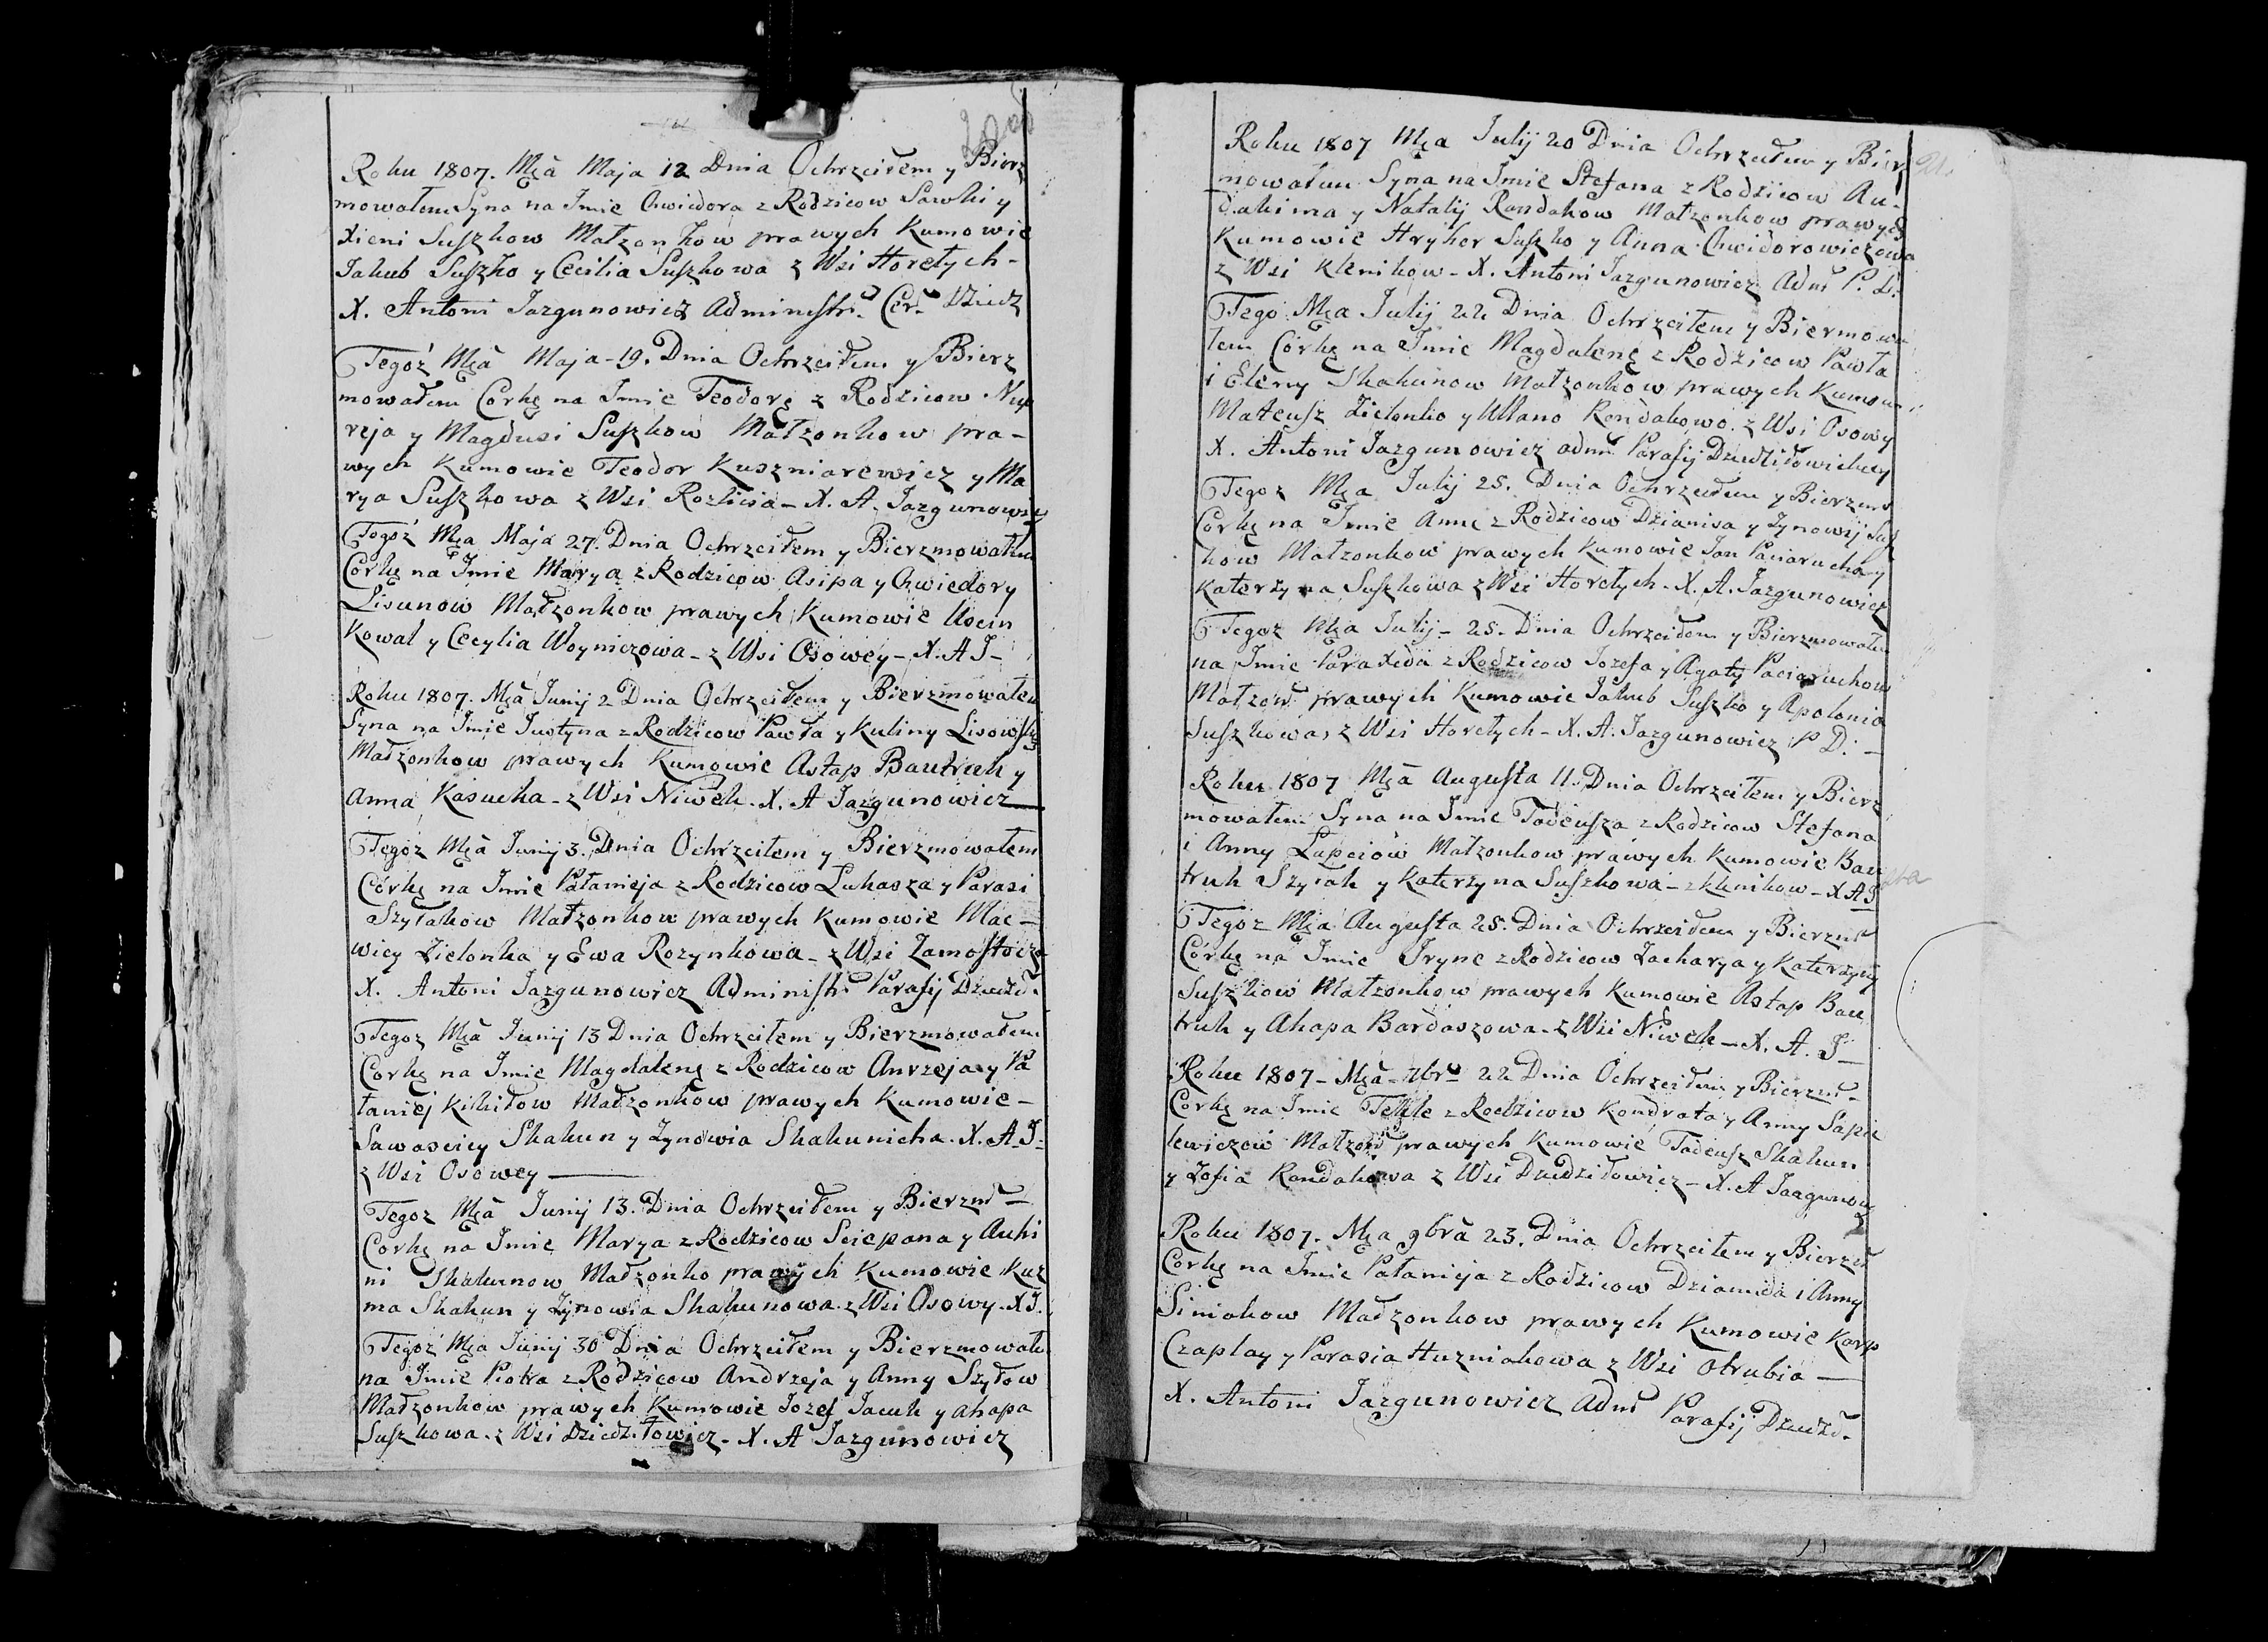 Roku 1807. Mca Maja 12 Dnia Ochrzciłem y Bierz
mowałem Syna na Jmie Chwiedora z Rodzicow Sawki y
Xieni Suszkow Małzonkow prawych Kumowie
Jakub Suszko y Cecilia Suszkowa z Wsi Horełych -
X. Antoni Jazgunowicz Administr. Cer. Dziedz
Tegoż Mca Maja - 19. Dnia Ochrzciłem y Bierz
mowałem Corkę na Jmie Teodorę z Rodzicow Nup
reja y Magdusi Suszkow Małzonkow pra-
wych Kumowie Teodor Kuszniarewicz y Ma
rya Suszkowa z Wsi - X. A. Jazgunowicz
Tegoż Mca Maja 27. Dnia Ochrzciłem y Bierzmowałem
Corkę na Jmie Marya z Rodzicow Asipa y Chwiedory
Lisunow Małzonkow prawych Kumowie Uscin
Kowal y Cecylia Woyniczowa - z Wsi Osowey - X. A J -
Roku 1807. Mca Junij 2 Dnia Ochrzciłem y Bierzmowałem
Syna na Jmie Justyna z Rodzicow Pawła y Kuliny
Małzonkow prawych Kumowie Astap Bautruk y
Anna Kasucha - z Wsi Niwek. X. A Jazgunowicz
Tegoż Mca Junij 3. Dnia Ochrzciłem y Bierzmowałem
Córkę na Jmie Pałanieja z Rodzicow Łukasza y Parasi
Szyłakow Małzonkow prawych Kumowie Mac-
wiey Zielonka y Ewa Rozynkowa - z Wsi Zamostocza
X. Antoni Jazgunowicz Administr. Parafij Dziedz.
Tegoż Mca Junij 13 Dnia Ochrzciłem y Bierzmowałem
Corkę na Jmie Magdalenę z Rodzicow Anrzeja y Pa
łaniej Kikiłow Małzonkow prawych Kumowie -
Sawasciey Skakun y Zynowia Skakunicha. X. A. J -
z Wsi Osowey
Tegoż Mca Junij 13. Dnia Ochrzciłem y Bierzm -
Corkę na Jmie Marya z Rodzicow Sciepana y Auhi
ni Skakunow Małzonko prawych Kumowie Kuz
ma Skakun y Zynowia Skakunowa - z Wsi Osowy. X J.
Tegoż Mca Junij 30 Dnia Ochrzciłem y Bierzmowałe
na Jmie Piotra z Rodzicow Andrzeja y Anny Szyłow
Małzonkow prawych Kumowie Jozef Jacuk y Ahapa
Suszkowa - z Wsi Dziedziłowicz - X. A Jazgunowicz
Roku 1807 Mca Julij 20 Dnia Ochrzciłem y Bierz
mowałem Syna na Jmie Stefana z Rodzicow Au-
dakima y Natalij Randakow Małzonkow prawych
Kumowie Hryhor Suszko y Anna Chwidorowiczowa
z Wsi Klenikow - X. Antoni Jazgunowicz Adm P. D.
Tego Mca Julij 22 Dnia Ochrzciłem y Biermowa
łem Córkę na Jmie Magdalenę z Rodzicow Pawła
i Eleny Skakunow Małzonkow prawych Kumow
Mateusz Zielonko y Ullana Rendakowo. z Wsi Osowy
X. Antoni Jazgunowicz adm Parafij Dziedziłowickiey
Tegoz Mca Julij 25. Dnia Ochrzciłem y Bierzmo
Córkę na Jmie Annę z Rodzicow Dzianisa y Zynowij Susz
kow Małzonkow prawych Kumowie Jan Paciarucha y
Katerzyna Suszkowa z Wsi Horełych - X. A. Jazgunowicz
Tegoz Mca Julij - 25. Dnia Ochrzciłem y Bierzmowałe
na Jmie Paraxeda z Rodzicow Jozefa y Agaty Paciaruchow
Małzow prawych Kumowie Jakub Suszko y Apolonia
Suszkowa, z Wsi Horełych - X. A. Jazgunowicz P D. -
Roku 1807 Mca Augusta 11. Dnia Ochrzciłem y Bierz
mowałem Syna na Jmie Tadeusza z Rodzicow Stefana
i Anny Łapciow Małzonkow prawych Kumowie Bau
truk Szyłak y Katerzyna Suszkowa - z Klenikow - X A J
Tegoz Mca Augusta 25. Dnia Ochrzciłem y Bierzm
Córkę na Jmie Jrynę z Rodzicow Zacharya y Katerzyny
Suszkow Małzonkow prawych Kumowie Astap Bau
truk y Ahapa Bardaszowa - z Wsi Niwek - X. A. J -
Roku 1807 - Mca - 7br 22 Dnia Ochrzciłem y Bierzm -
Corkę na Jmie Teklę z Rodzicow Kondrata y Anny Sapie
lewiczow Małzon prawych Kumowie Tadeusz Skakun
y Zofia Randakowa z Wsi Dziedziłowicz - X. A Jazgunow
Roku 1807. Mca 9bra 23. Dnia Ochrzciłem y Bierzm
Córkę na Jmie Pałanieja z Rodzicow Dziamida i Anny
Siniakow Małzonkow prawych Kumowie Karp
Czaplay y Parasia Huzniakowa z Wsi Otrubia -
X. Antoni Jazgunowicz Adm Parafij Dziedz.